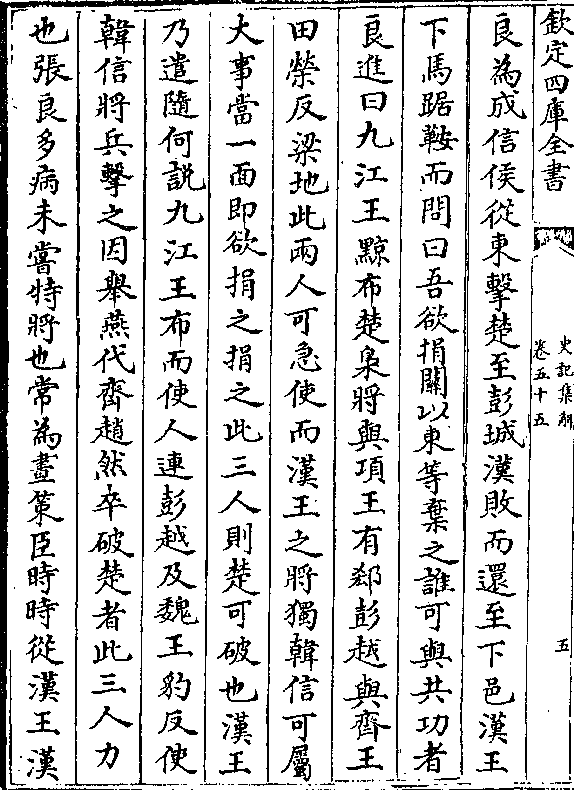 欽定四庫全書
史記集解
卷五十五
五
良為成信侯從東擊楚至彭城漢敗而還至下邑漢王
下馬踞鞍而問曰吾欲捐關以東等棄之誰可與共功者
良進曰九江王黥布楚梟將與項王有郄彭越與齊王
田榮反梁地此兩人可急使而漢王之將獨韓信可屬
大事當一面即欲捐之捐之此三人則楚可破也漢王
乃遣隨何説九江王布而使人連彭越及魏王豹反使
韓信將兵擊之因舉燕代齊趙然卒破楚者此三人力
也張良多病未嘗特將也常為畫策臣時時從漢王漢